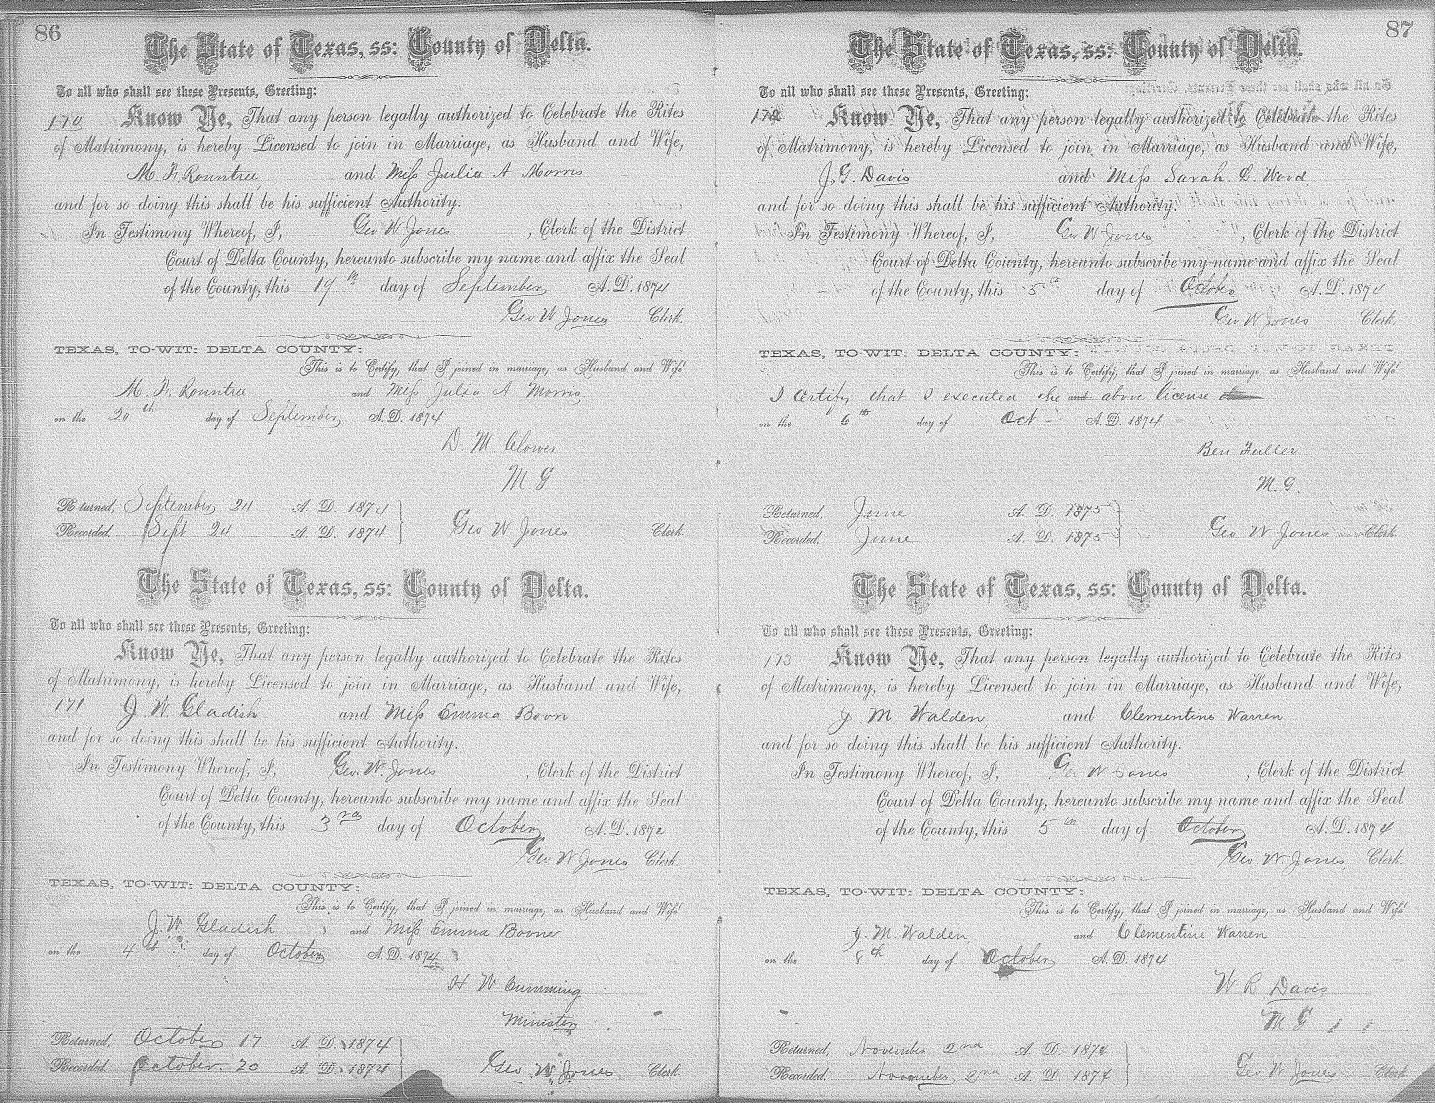 86
The State of Texas, ss: County of Delta.
To all who shall see these Presents, Greeting:
170 Know Ye, That any person legally authorized to Celebrate the Rites
of Matrimony, is hereby Licensed to join in Marriage, as Husband and Wife,
M. F. Rountree and Miss Julia A Morris
and for so doing this shall be his sufficient Authority.
In Testimony Whereof, I, Geo W Jones, Clerk of the District
Court of Delta County, hereunto subscribe my name and affix the Seal
of the County, this 19th day of September A. D. 1874
Geo W Jones Clerk.
TEXAS, TO-WIT: DELTA COUNTY:
This is to Certify, that I joined in marriage, as Husband and Wife
M. F. Rountree and Miss Julia A Morris
on the 20th day of September A. D. 1874
D. M. Clower
M G
Returned, September 24 A. D. 1874
Recorded, Sept 24 A. D. 1874 Geo W Jones Clerk
The State of Texas, ss: County of Delta.
To all who shall see these Presents, Greeting:
Know Ye, That any person legally authorized to Celebrate the Rites
of Matrimony, is hereby Licensed to join in Marriage, as Husband and Wife,
171 J W Gladish and Miss Emma Boon
and for so doing this shall be his sufficient Authority.
In Testimony Whereof, I, Geo. W. Jones, Clerk of the District
Court of Delta County, hereunto subscribe my name and affix the Seal
of the County, this 3rd day of October A. D. 1874
Geo W Jones Clerk.
TEXAS, TO-WIT: DELTA COUNTY:
This is to Certify, that I joined in marriage, as Husband and Wife
J. W. Gladish and Miss Emma Boone
on the 4 day of October A. D. 1874
H W Cumming
Minister
Returned, October 17 A. D. 1874
Recorded, October 20 A. D. 1874 Geo. W. Jones Clerk
87
The State of Texas, ss: County of Delta.
To all who shall see these Presents, Greeting:
172 Know Ye, That any person legally authorized to Celebrate the Rites
of Matrimony, is hereby Licensed to join in Marriage, as Husband and Wife,
J. G. Davis and Miss Sarah. D. Wood
and for so doing this shall be his sufficient Authority.
In Testimony Whereof, I, Geo W Jones, Clerk of the District
Court of Delta County, hereunto subscribe my name and affix the Seal
of the County, this 5th day of October A. D. 1874
Geo W Jones Clerk.
TEXAS, TO-WIT: DELTA COUNTY:
This is to Certify, that I joined in marriage, as Husband and Wife
I certify that I executed the and above license
on the 6th day of Oct - A. D. 1874
Ben Fuller
M. G.
Returned, June A. D. 1875
Recorded, June A. D. 1875 Geo W Jones Clerk
The State of Texas, ss: County of Delta.
To all who shall see these Presents, Greeting:
173 Know Ye, That any person legally authorized to Celebrate the Rites
of Matrimony, is hereby Licensed to join in Marriage, as Husband and Wife,
J M Walden and Clementine Warren
and for so doing this shall be his sufficient Authority.
In Testimony Whereof, I, Geo W Jones, Clerk of the District
Court of Delta County, hereunto subscribe my name and affix the Seal
of the County, this 5th day of October A. D. 1874
Geo W Jones Clerk.
TEXAS, TO-WIT: DELTA COUNTY:
This is to Certify, that I joined in marriage, as Husband and Wife
J. M. Walden and Clementine Warren
on the 8th day of October A. D. 1874
W R Davis
M G
Returned, November 2nd A. D. 1874
Recorded, November 2nd A. D. 1874 Geo W Jones Clerk